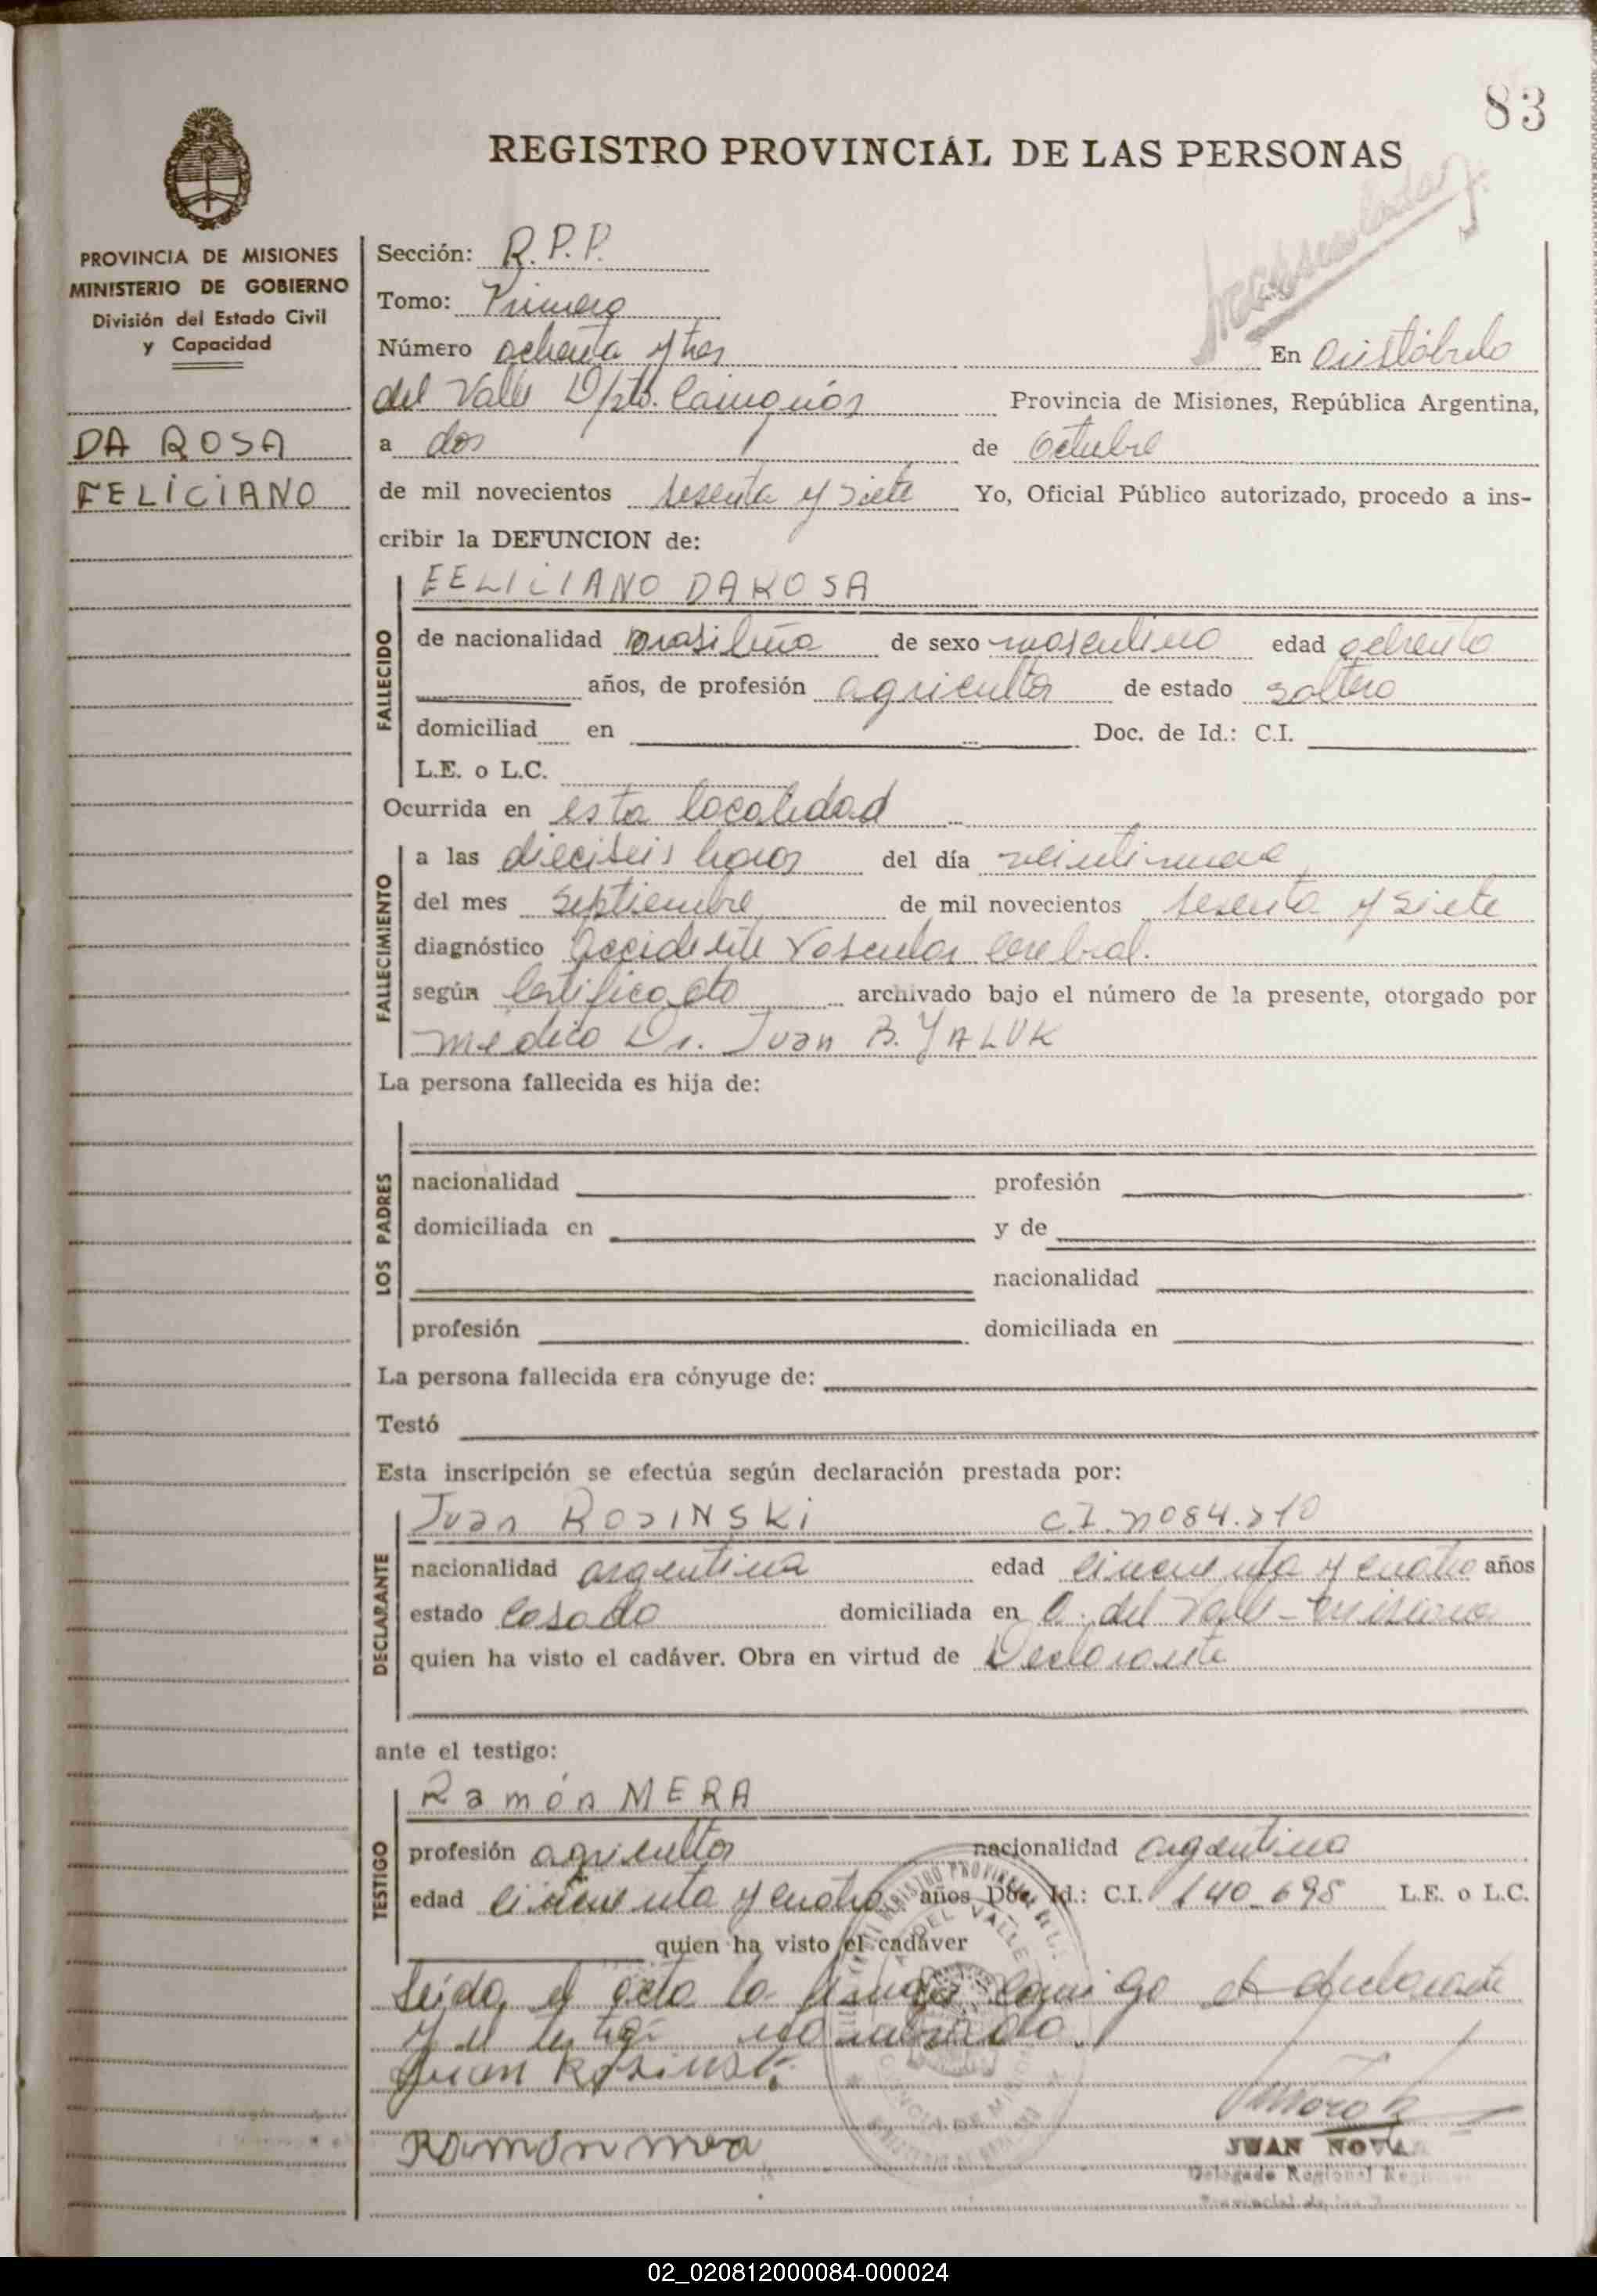 83
REGISTRO PROVINCIAL DE LAS PERSONAS
PROVINCIA DE MISIONES
MINISTERIO DE GOBIERNO
División del Estado Civil
y Capacidad
DA ROSA
FELICIANO
Sección: R.P.P.
Tomo: Primero
Número ochenta y tres En Aristóbulo
del Valle Dpto. Cainguás Provincia de Misiones, República Argentina,
a dos de octubre
de mil novecientos sesenta y siete Yo, Oficial Público autorizado, procedo a ins-
cribir la DEFUNCION de:
FALLECIDO
FELICIANO DAROSA
de nacionalidad brasileña de sexo masculino edad ochenta
años, de profesión agricultor de estado soltero
domiciliad en Doc. de Id.: C.I.
L.E. o L.C.
Ocurrida en esta localidad
FALLECIMIENTO
a las dieciseis horas del día veintinueve
del mes septiembre de mil novecientos sesenta y siete
diagnóstico accidente Vascular Cerebral.
según Certificado archivado bajo el número de la presente, otorgado por
médico Dr. Juan B. YALUK
La persona fallecida es hija de:
LOS PADRES
nacionalidad profesión
domiciliada en y de
nacionalidad
profesión domiciliada en
La persona fallecida era cónyuge de:
Testó
Esta inscripción se efectúa según declaración prestada por:
DECLARANTE
Juan ROSINSKi C.I. nº 84.210
nacionalidad argentina edad cincuenta y cuatro años
estado casado domiciliada en A. del Valle - Misiones
quien ha visto el cadáver. Obra en virtud de Declarante
ante el testigo:
TESTIGO
Ramón MERA
profesión agricultor nacionalidad argentina
edad cincuenta y cuatro años Doc. Id.: C.I. 140_695 L.E. o L.C.
quien ha visto el cadáver
Leída el acta la firma conmigo el declarante
y el testigo nombrado.
Juan Rosinski
Ramón mera
JUAN NOVA
Delegado Regional
02_020812000084-000024